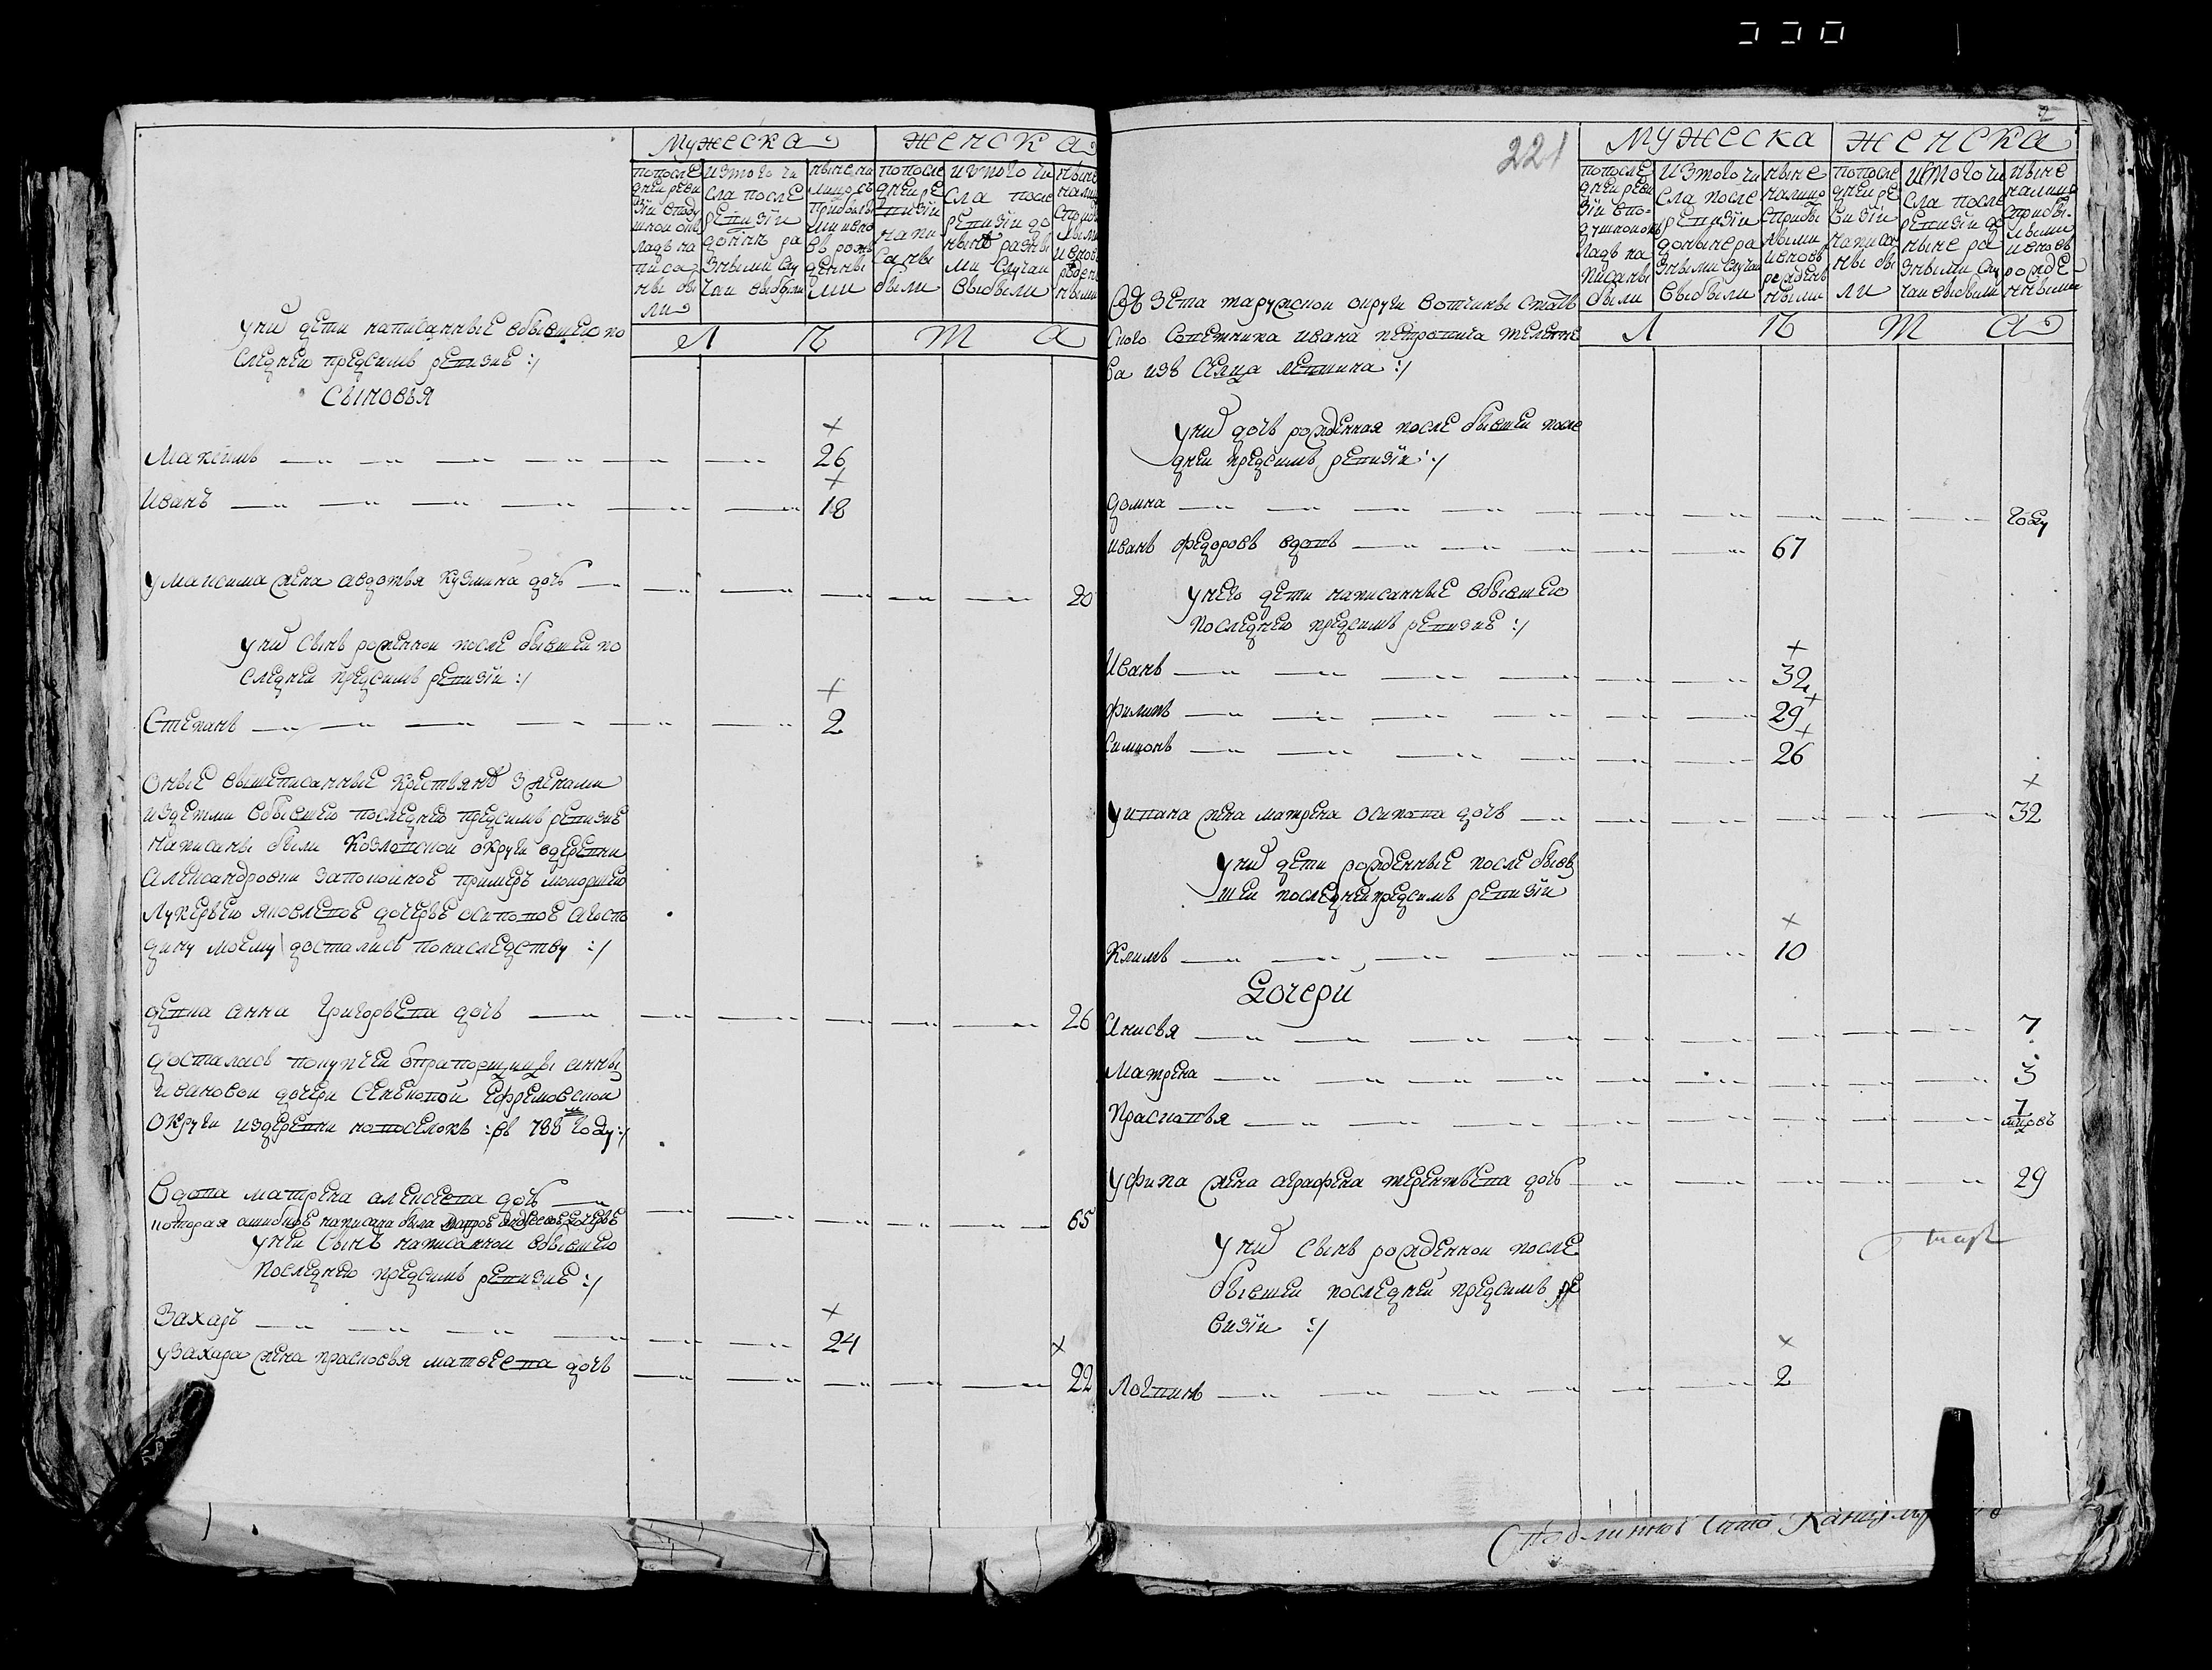 Мужеска
женска
попосле
дней реви
зiи в поду
шном ок
ладе на
писа
ны бы
ли
изтого чи
сла после
ревизiи
доныне ра
зными слу
чаи выбыли
ныне на
лицо съ
прибылы
ми и вно
въ рож
денны
ми
попосле
дней ре
визiи
напи
саны
были
истого чи
сла после
ревизiи до
ныне разны
ми случаи
выбыли
ныне
нали
сприбы
лыми
ивновь
рожден
ными
Л П Т А
уних дети написанные вбывшею по
следнею предсимъ ревизие :/
сыновья
Максимъ
26
Иванъ
18
умаксима жена авдотья кузмина дочь
20
уних сынъ рожденной после бывшей по
следней предсимъ ревизiи :/
Степанъ
2
Оные вышеписанные крестьяне зженами
издетми вбывшею последнею предсимъ ревизие
написаны были Козловской округи вдеревни
александровки запокойное
Лукерьею яковлевое дочерье осиповое агоспо
дину моему достались понаследству :/
девка анна григорьева дочь
26
досталась покупкеи
ивановои дочери Ефремовскои
округи издеревни :въ 788м году:/
вдова матрена алексеева дочь
65
которая ошибкое написана была дочерье
унеи сынъ написанной вбывшею
последнею предсимъ ревизие :/
Захаръ
24
узахара жена прасковья матвеева дочь
22
2
221
Мужеска
женска
попосле
дней реви
зiи впо-
душномок
ладе на
писаны
были
изтого чи
сла после
ревизiи
доныне ра
зными случаи
выбыли
ныне
налицо
сприбы
лыми
ивновь
рожден
ными
попосле
дней ре
визiи
написа
ны бы
ли
истого чи
сла после
ревизiи до
ныне ра
зными слу
чаи выбыли
ныне
налицо
сприбы-
лыми
ивновь
рожде
нными
Л П Т А
взета таружской округи вотчины статъ
скаго советника ивана петровича
ва изъ селца :/
уних дочь рожденная после бывшеи после
дней предсимъ ревизiи :/
домна
году
иванъ федоровъ вдовъ
67
унего дети написанные вбывшею
последнею предсимъ ревизие :/
Иванъ
32
филипъ
29
симионъ
26
уивана жена матрена осипова дочь
32
уних дети рожденные после бывъ
шеи последнеипредсимъ ревизiи
Климъ
10
Дочери
Анисья
7
Матрена
3
Прасковья
7
уфипа жена аграфена терентьева дочь
29
уних сынъ рожденной после
бывшеи последней предсимъ ре
визiи :/
Логвинъ
2
Сподлинной